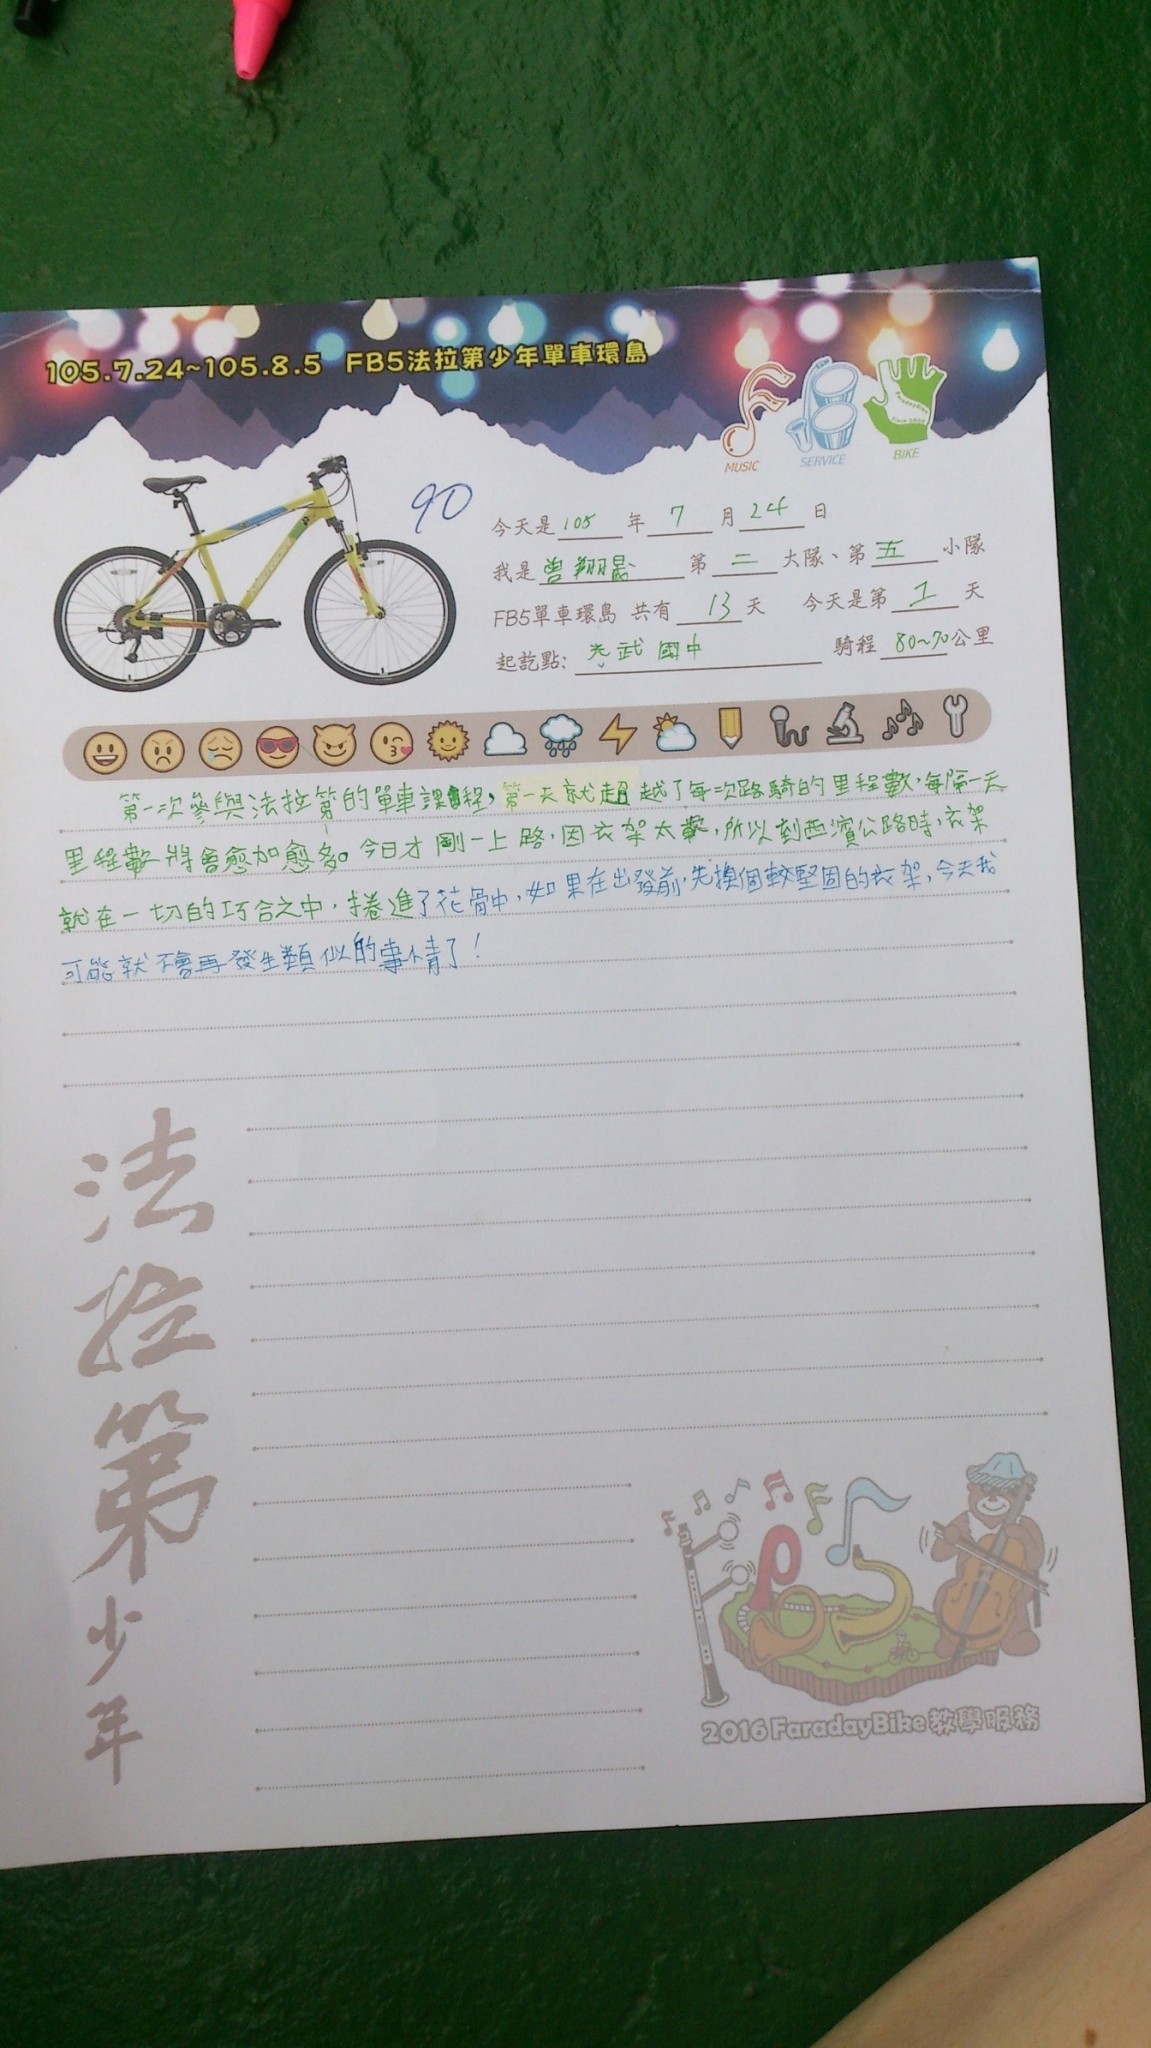 105.7.24~105.8.5 FB5法拉第少年單車環島
MUSIC SERVICE BIKE
90
今天是 105 年 7 月 24 日
我是 曾翔晨 第 二 大隊、第 五 小隊
FB5單車環島 共有 13 天 今天是第 1 天
起訖點: 光武國中 騎程 80~90公里
第一次參與法拉第的單車課程,第一天就超越了每次路騎的里程數,每隔一天
里程數將會愈加愈多。今日才剛一上路,因衣架太軟,所以刻西濱公路時,衣架
就在一切的巧合之中,捲進了花骨中,如果在出發前,先換個較堅固的衣架,今天我
可能就不會再發生類似的事情了!
法拉第少年
2016 FaradayBike 教學服務